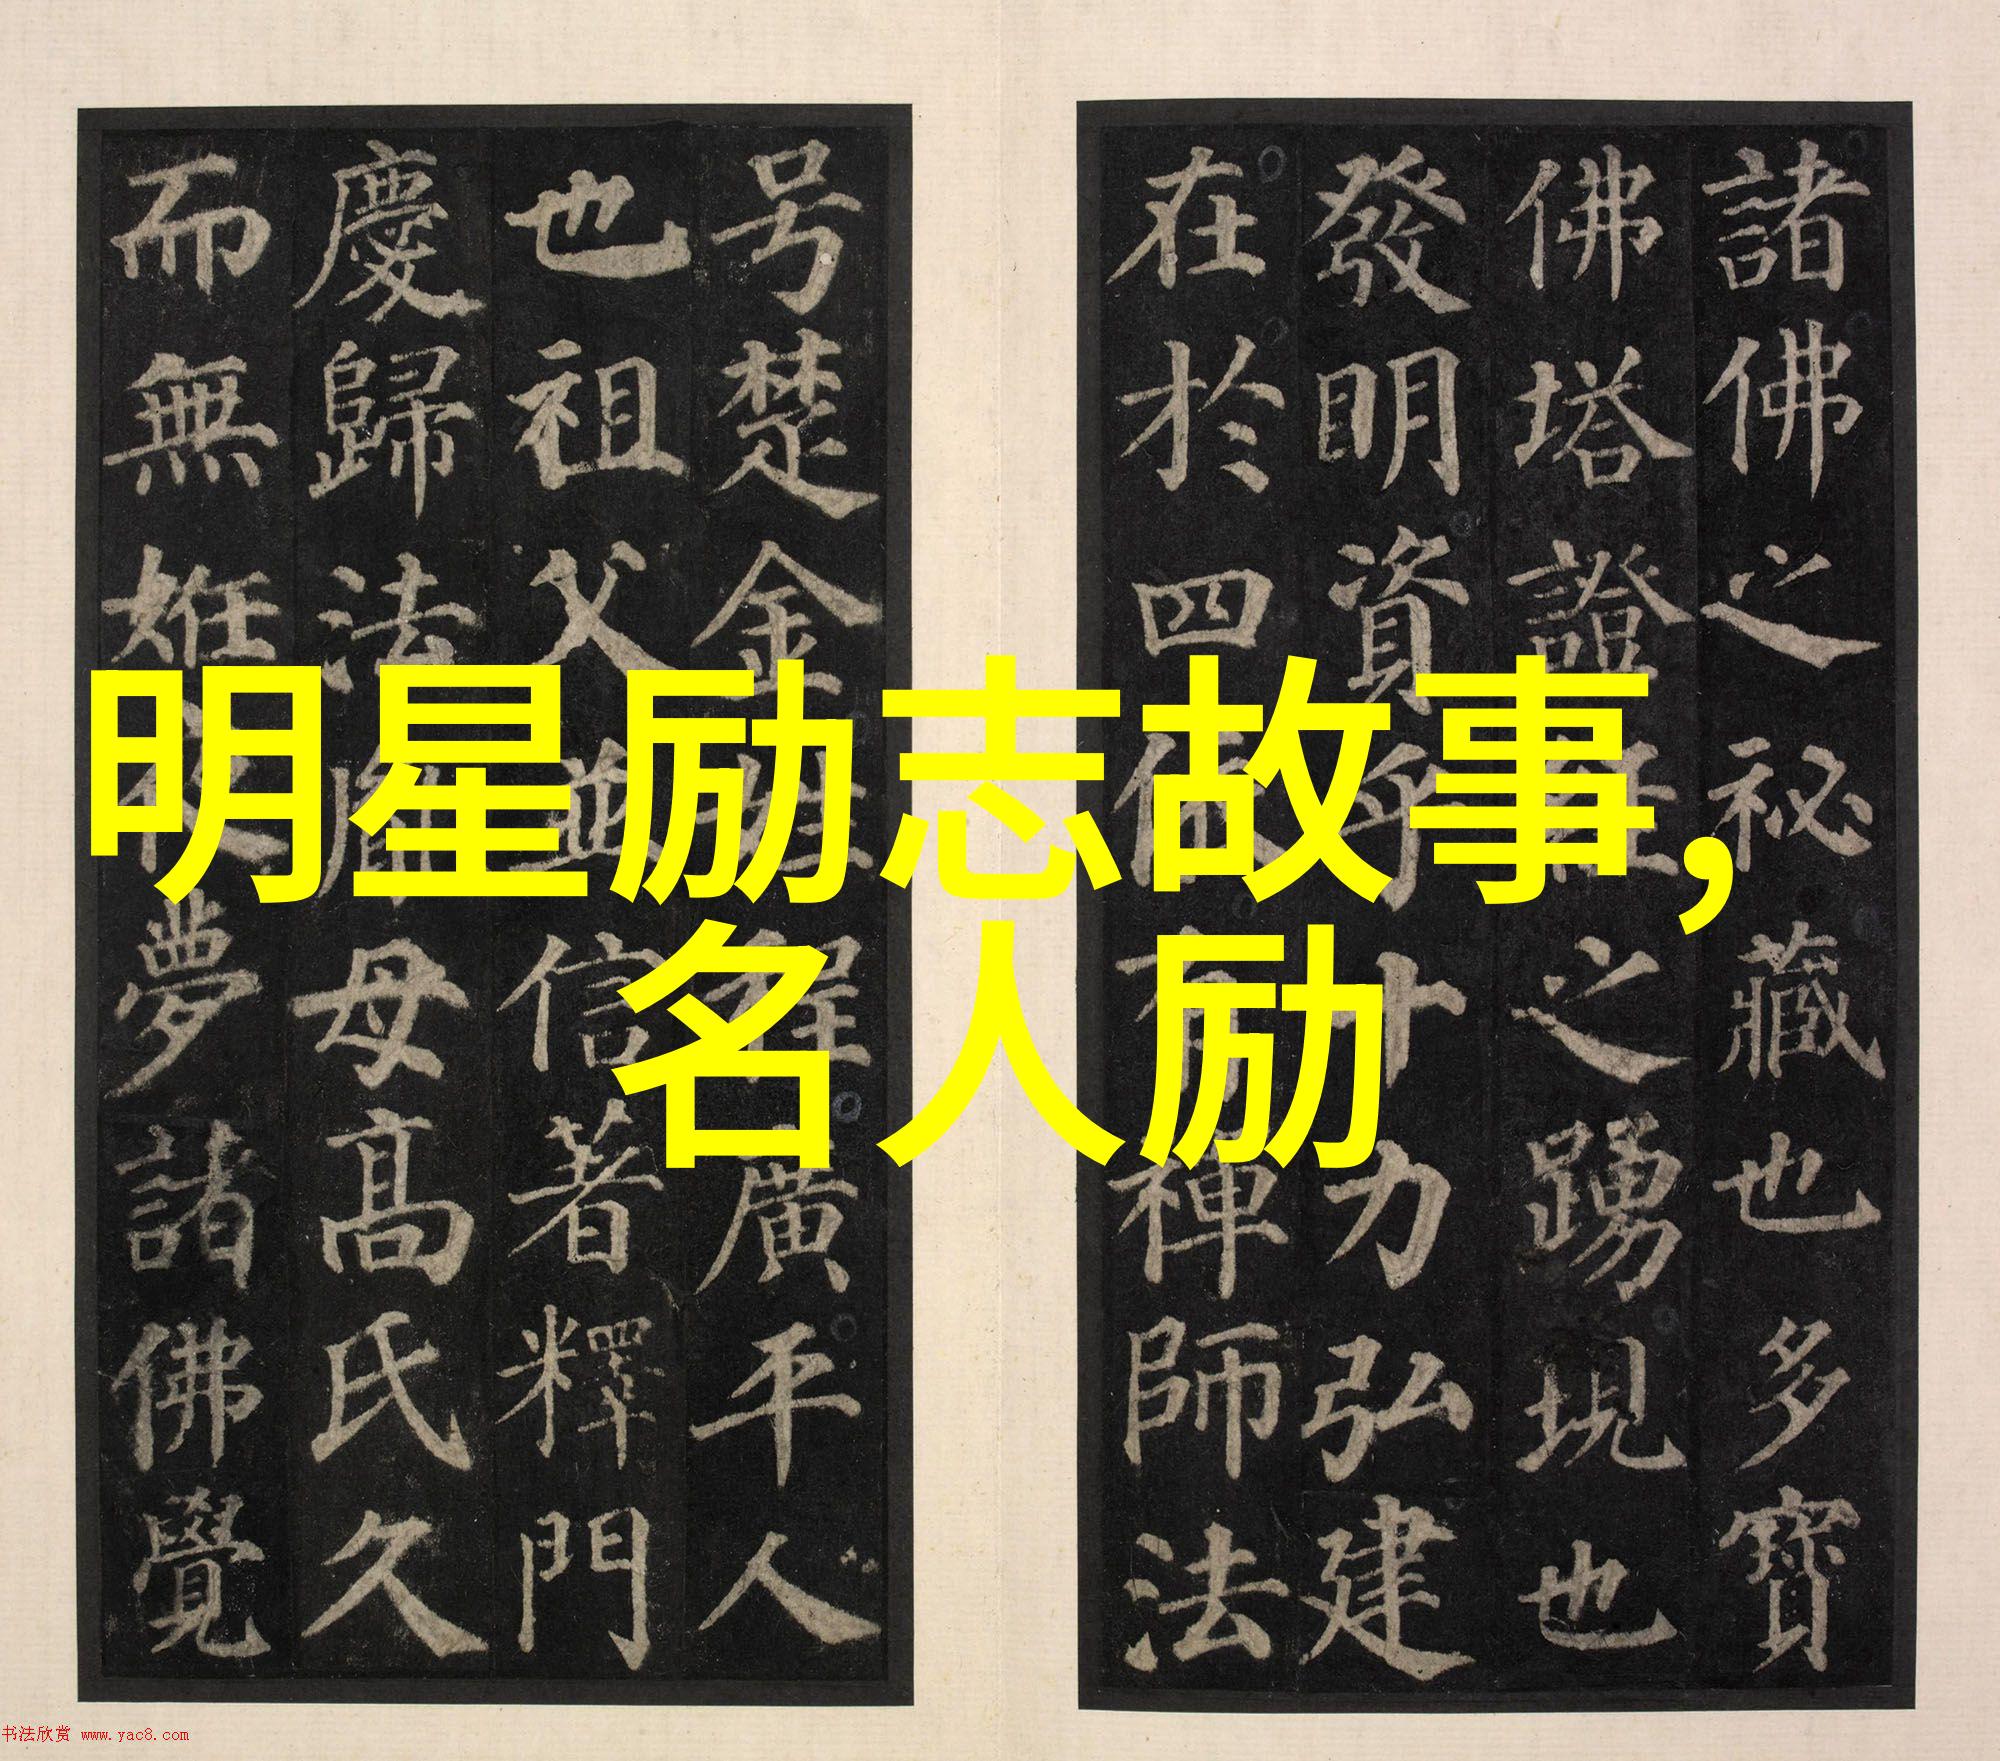 明星励志故事,
名人励
諸佛之祕藏也多寶
佛塔證經之踴現也
發明資乎十力弘建
在於四依有禪師法
号楚金姓程廣平人
也祖父並信著釋門
慶歸法胤母高氏久
而無姙夜夢諸佛覺
书法欣赏 www.yac8.com